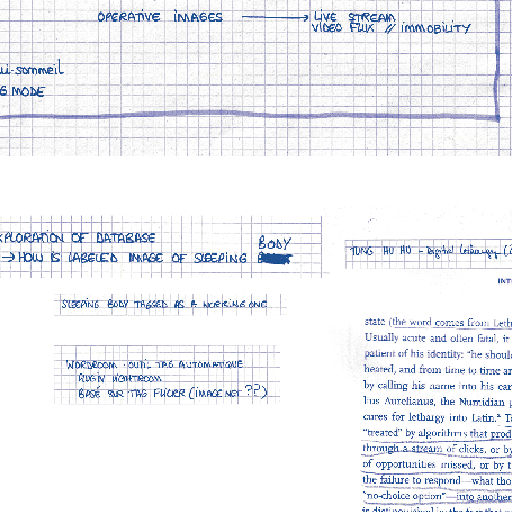 OPERATIVE IMAGES → LIVE STREAM
VIDEO FLUX // IMMOBILITY
ui-sommeil
G MODE
XPLORATION OF DATABASE
→ HOW IS LABELED IMAGE OF SLEEPING BODY
TUNG HU HU - Digital Lethargy (
SLEEPING BODY TAGGED AS A WORKING ONE
INT
WORDROOM · OUTIL TAG AUTOMATIQUE
BASÉ SUR TAG FLICKR (IMAGE NET ??)
state (the word comes from Leth
Usually acute and often fatal, it
patient of his identity: "he shoul
heared, and from time to time ar
by calling his name into his ear
lius Aurelianus, the Numidian p
cures for lethargy into Latin." T
"treated" by algorithms that prod
through a stream of clicks, or by
of opportunities missed, or by t
the failure to respond—what tho
"no-choice option"—into another